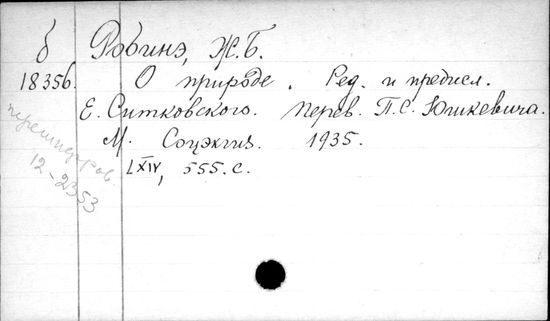 б Робинэ, Ж.Б.
18356. О природе. Ред. и предисл.
Е. Ситковского. Перев. П.С. Юшкевича.
М. Соцэкгиз. 1935.
LXIV, 555. с.
перешифров.
12-2353